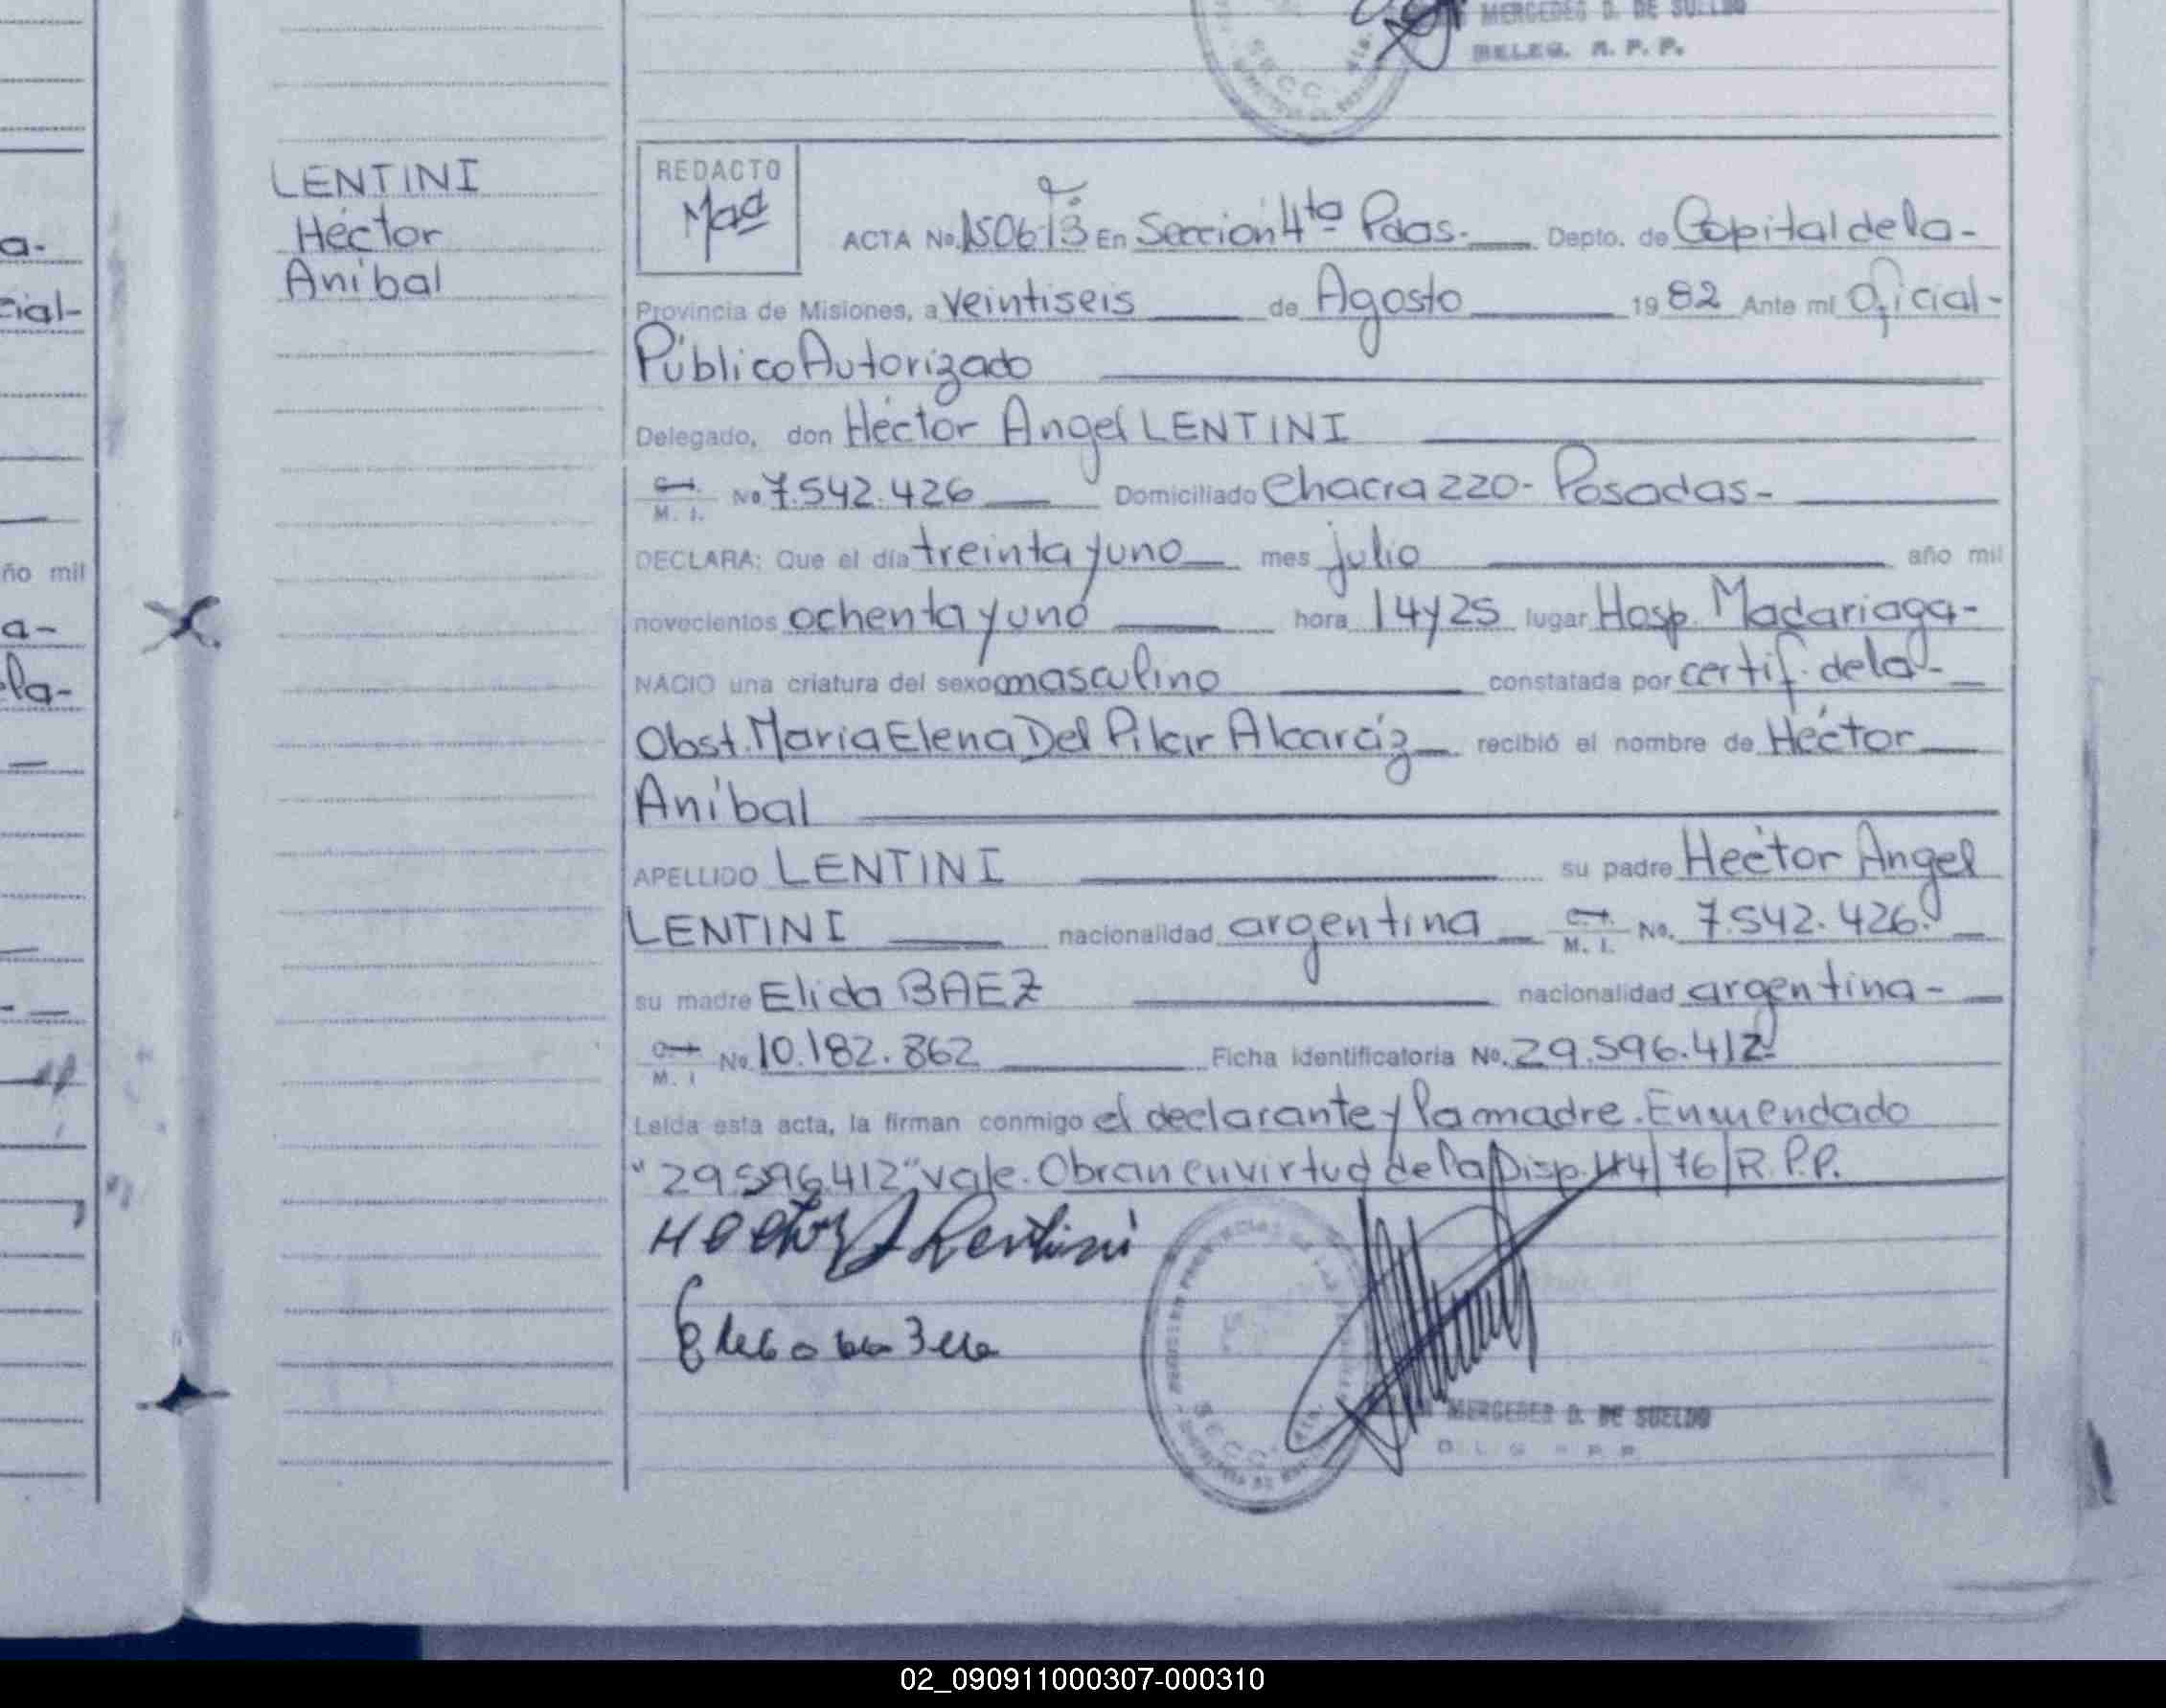 MERCEDES D. DE SUELDO
DELEG. R. P. P.
LENTINI
Héctor
Aníbal
REDACTO
ACTA No. 1506 Tº 13 En Sección 4ta Pdas. Depto. de Capital de la-
Provincia de Misiones, a veintiseis de Agosto 1982 Ante mí Oficial-
Público Autorizado
Delegado, don Héctor Angel LENTINI
M. I. No 7.542.426 Domiciliado Chacra 220- Posadas-
DECLARA: Que el día treinta y uno mes julio año mil
novecientos ochenta y uno hora 14 y 25 lugar Hosp. Madariaga-
NACIO una criatura del sexo masculino constatada por certif. de la-
Obst. María Elena Del Pilar Alcaráz recibió el nombre de Héctor
Aníbal
APELLIDO LENTINI su padre Héctor Angel
LENTINI nacionalidad argentina M. I. No. 7.542.426.
su madre Elida BAEZ nacionalidad argentina-
M. I No. 10.182.862 Ficha identificatoria No. 29.596.412
Leída esta acta, la firman conmigo el declarante y la madre. Enmendado
"29.596.412" vale. Obran en virtud de la Disp. 44/76/R.P.P.
Hector A Lentini
MERCEDES D. DE SUELDO
ño mil
a-
cial-
a-
la-
02_090911000307-000310